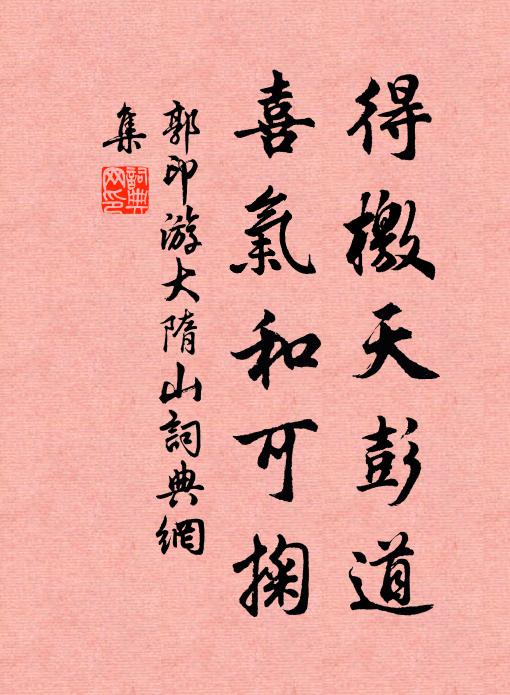 得檄天彭道
喜氣和可掬
郭印游大隋山詞典網
集
詞典网印